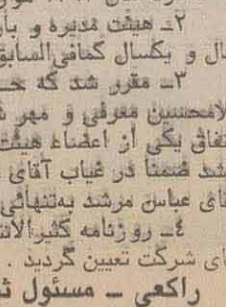 ۲ـ هیئت مدیره و باز
ال و یکسال کمافی‌السابق
۳ـ مقرر شد که
لامحسین معرفی و مهر
تفاق یکی از اعضاء هیئت
شد ضمنا در غیاب آقای
ای عباس مرشد به‌تنهائی
٤ـ روزنامه کثیرالانت
ای شرکت تعیین گردید .
راکعی ــ مسئول ث